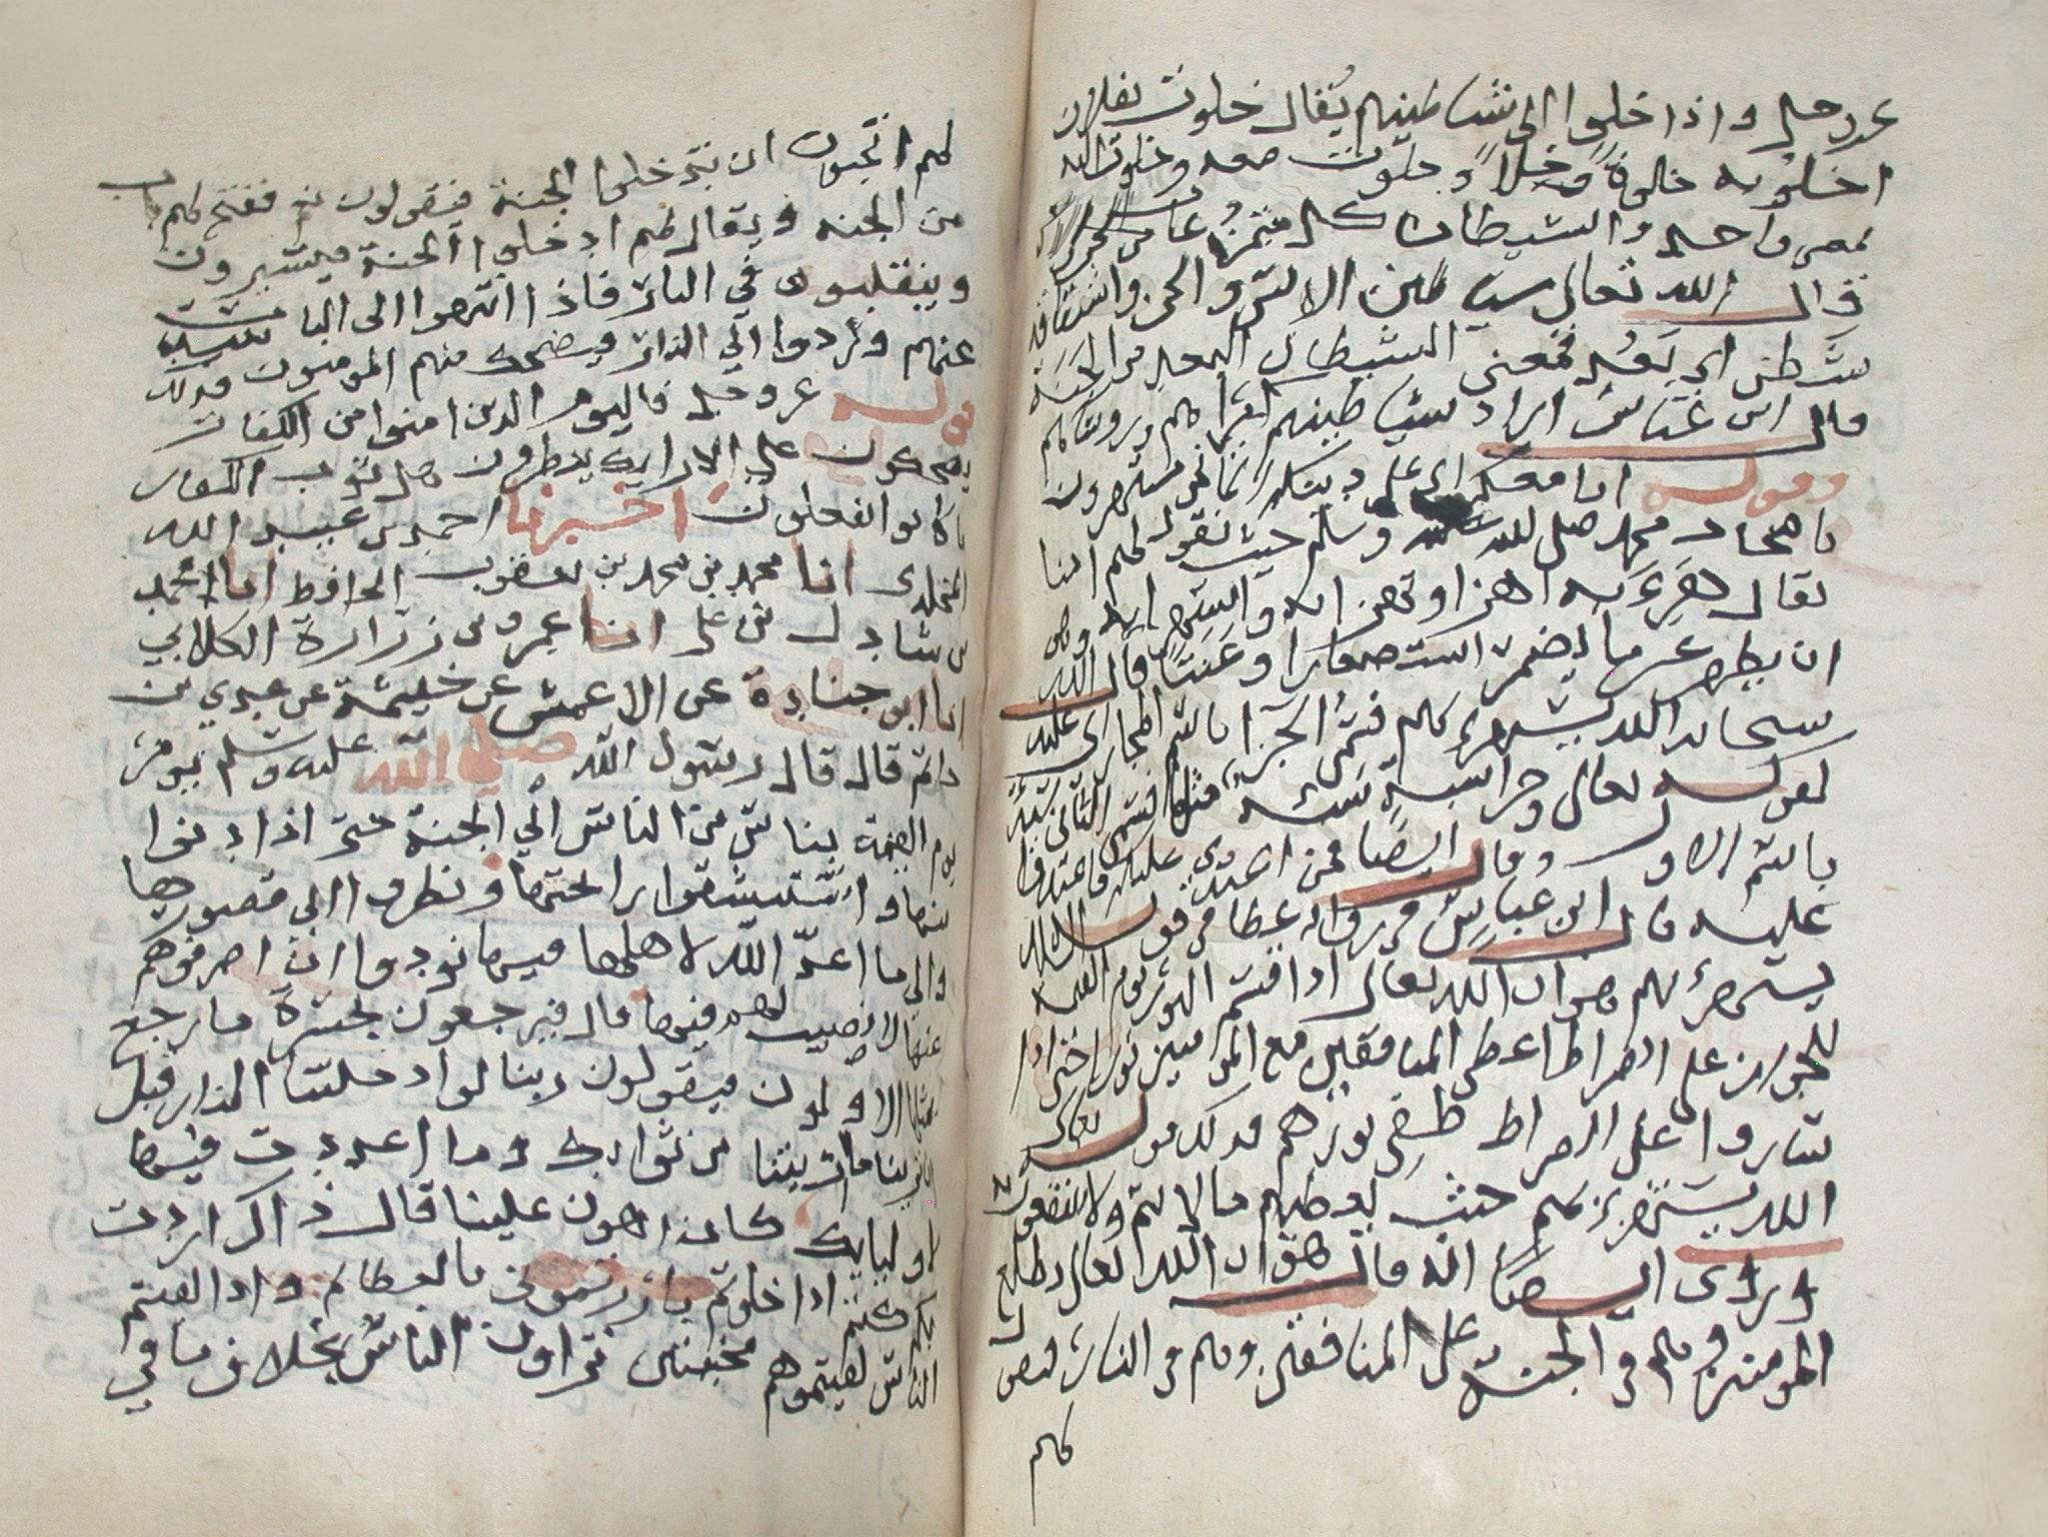 عز وجل واذا خلوا الى شياطينهم يُقال خلوت بفلان
اخلو به خلوة وخلاً و خلوت معه وخلوت اليه
بمعنى واحد والشيطان كل متمرد عات من الجن والانس
قال الله تعالى شياطين الانس والجن واشتقاقه
شطن اي بَعُد فمعنى الشيطان البعيد من الجنة
قال ابن عباس اراد شياطينهم كبراهم وروساهم
وقوله انا معكم اي على دينكم انما نحن مستهزون
باصحاب محمد صلى الله عليه وسلم حيث نقول لهم امنا
يقال هزِءَ به يهزا وتهزا به واستهزا به وهو
ان يظهر غير ما يضمر استصغارا وعَبَثًا قال الله
سبحانه الله يستهزئ بهم فسُمّي الجزا باسم المجازى عليه
كقوله تعالى وجزا سيةٍ سيئة مثلها فسمى الثاني سيئة
باسم الاول وقال ايضا فمن اعتدى عليكم فاعتدوا
عليه قال ابن عباس في رواية عطا في قوله الله
يستهزئ بهم هو ان الله تعالى اذا قسم النور يوم القيمة
للجواز على الصراط اعطى المنافقين مع المومنين نورا حتى اذا
ساروا على الصراط طفى نورهم فذلك قوله تعالى
الله يستهزئ بهم حيث يعطيهم ما لا يتم ولا ينتفعون به
وروى ايضا انه قال هو ان الله تعالى يطلع
المومنين وهم في الجنة على المنافقين وهم في النار فيقول
لهم
لهم اتحبون ان تدخلوا الجنة فيقولون نعم فيفتح لهم باب
من الجنه ويقال لهم ادخلوا الجنة فيسيرون
وينقلبون في النار فاذا انتهوا الى الباب سُدّ
عنهم وردوا الى النار ويضحك منهم المومنون فذلك
قوله عز وجل فاليوم الذين امنوا من الكفار
يضحكون على الارايك ينظرون هل ثوب الكفار
ما كانوا يفعلون اخبرنا احمد بن عبيد الله
المخلدي انا محمد بن محمد بن يعقوب الحافظ انا احمد
بن شاذل بن علي انا عمرو بن زرارة الكلابي
انا ابو جنادة عن الاعمش عن خيثمة عن عدي بن
حاتم قال قال رسول الله صلى الله عليه وسلم يومر
يوم القيمة بناس من الناس الي الجنة حتى اذا دنوا
منها واستنشقوا رايحتها ونظروا الى قصورها
والى ما اعدّ الله لاهلها فيها نودوا ان اصرفوهم
عنها لا نصيب لهم فيها قال فيرجعون بحسرة ما رجع
بمثلها الاولون فيقولون ربنا لو ادخلتنا النار قبل
ان ترينا ما اريتنا من ثوابك وما اعددت فيها
لاوليايك كان اهون علينا قال ذاك اردت
بكم كنتم اذا خلوتم بارزتموني بالعظايم واذا لقيتم
الناس لقيتموهم مخبتين تراون الناس بخلاف ما في